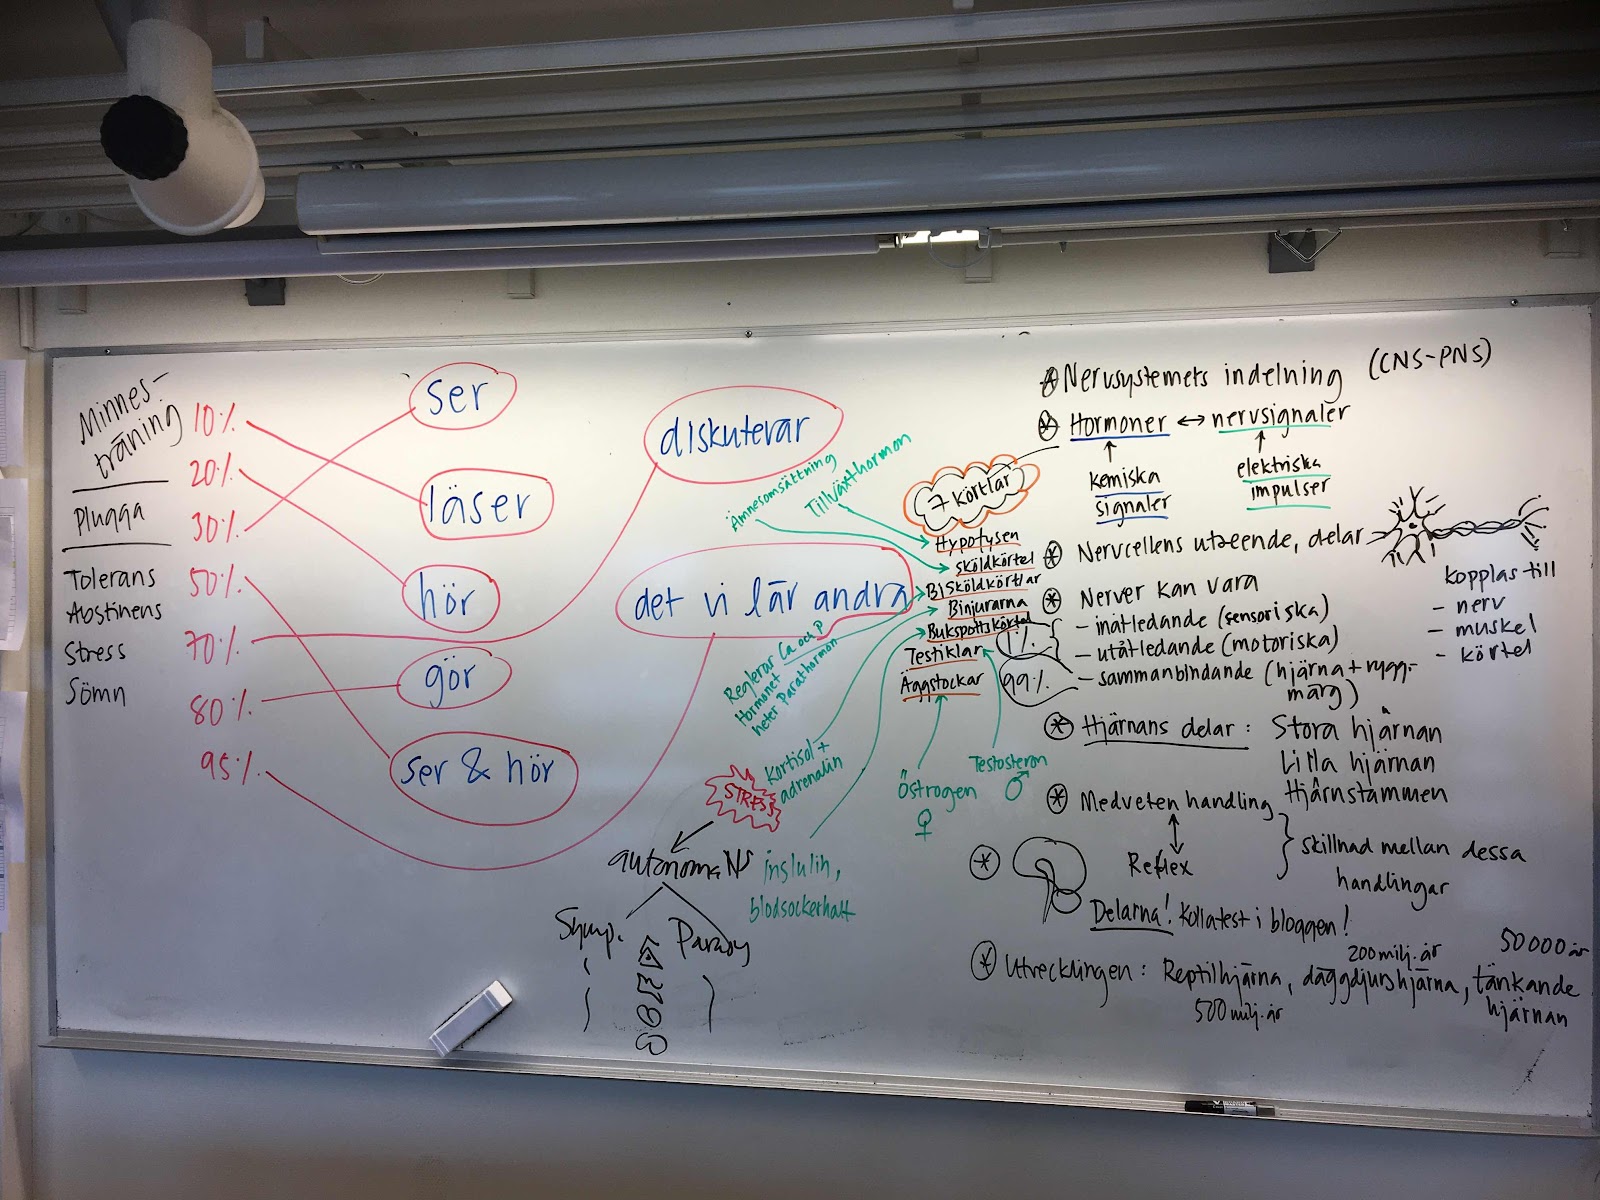 Minnes-
träning
Plugga
Tolerans
Abstinens
Stress
Sömn
10%
20%
30%
50%
70%
80%
95%
ser
läser
hör
gör
ser & hör
diskuterar
det vi lär andra
Ämnesomsättning
Tillväxthormon
7 körtlar
Hypofysen
sköldkörtel
Bisköldkörtlar
Binjurarna
Bukspottskörtel
Testiklar
Äggstockar
Reglerar Ca och P
Hormonet
heter Parathormon
Kortisol +
adrenalin
STRESS
autonoma NS
Symp.
Parasy
inslulin,
blodsockerhalt
Östrogen
♀
Testosteron
♂
1%
99%
Nervsystemets indelning (CNS-PNS)
Hormoner ↔ nervsignaler
kemiska
signaler
elektriska
impulser
Nervcellens utseende, delar
kopplas till
- nerv
- muskel
- körtel
Nerver kan vara
- inåtledande (sensoriska)
- utåtledande (motoriska)
- sammanbindande (hjärna + rygg-
märg)
Hjärnans delar: Stora hjärnan
Lilla hjärnan
Hjärnstammen
Medveten handling
Reflex
skillnad mellan dessa
handlingar
Delarna! Kolla test i bloggen!
Utvecklingen: Reptilhjärna, däggdjurshjärna, tänkande
hjärnan
500 milj. år
200 milj. år
50 000 år